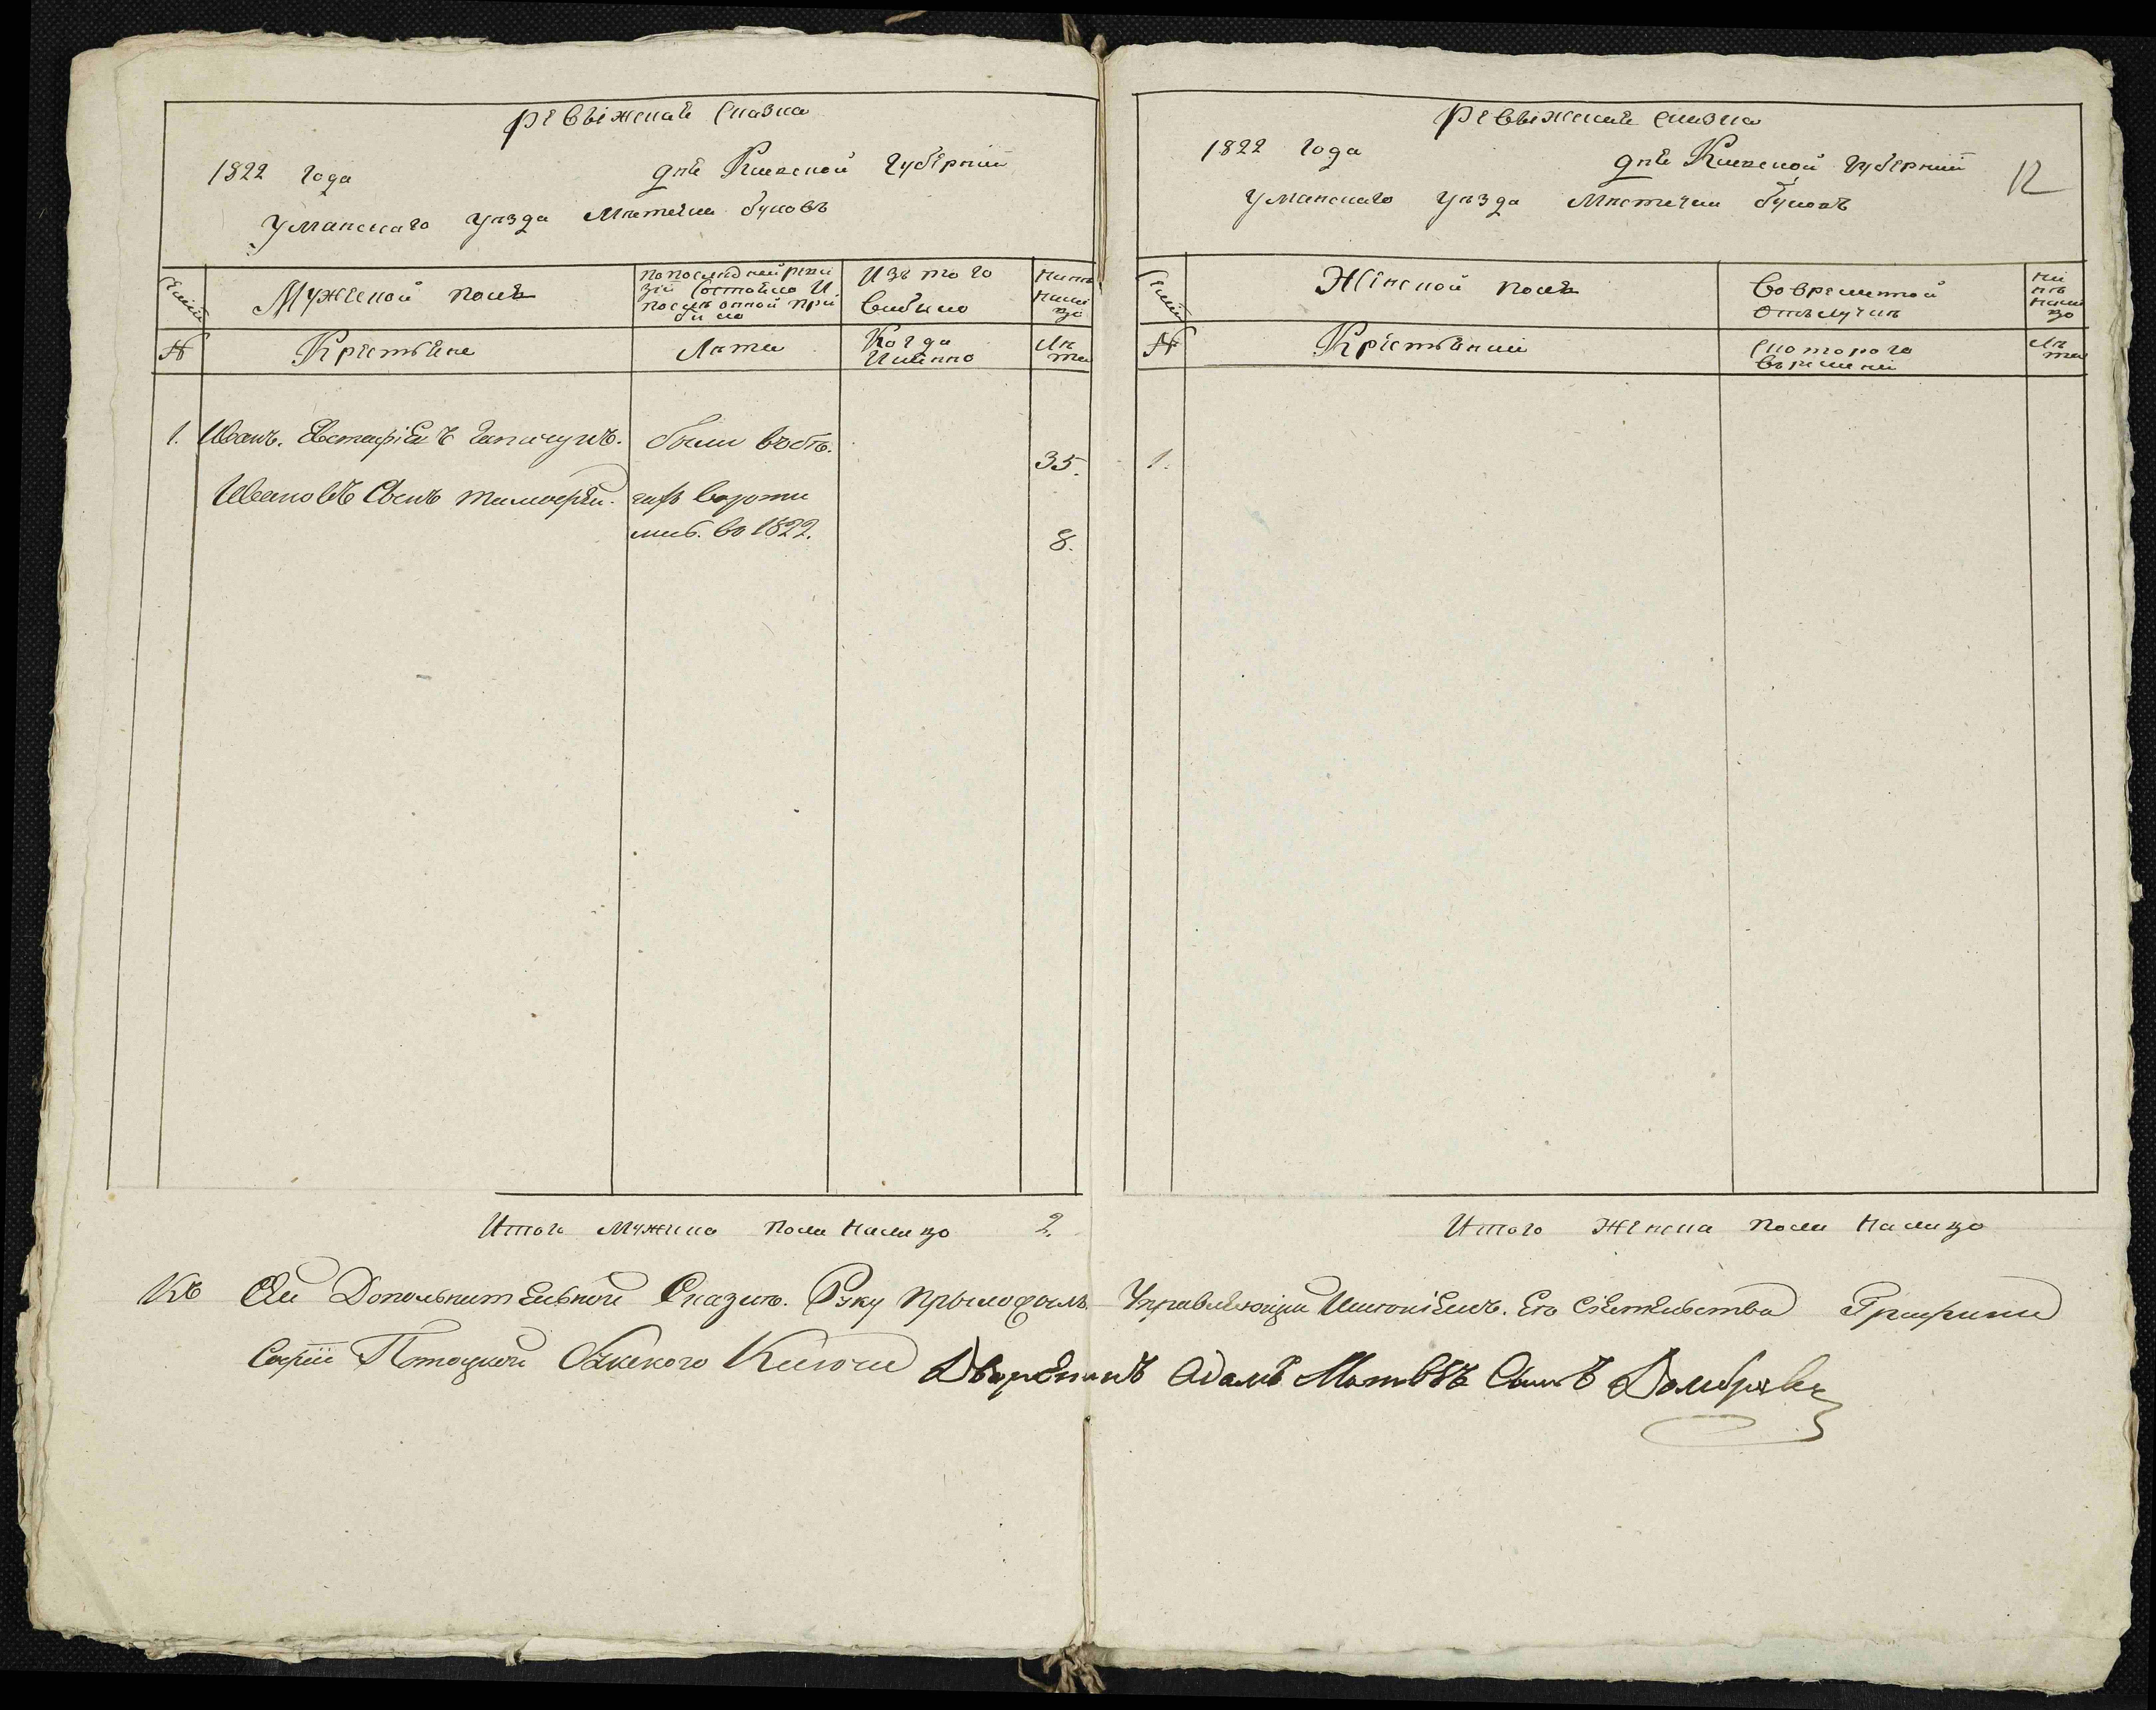 Ревѣжская Сказка
1822 года дня Киевской Губернии
Уманскаго уезда Мѣстечка Буковъ
Семьи
Мужеской полъ
по последней реви
зiи Состояло И
после онной при
было
Изъ того
Выбыло
ныне
нали
цо
№
Крестьяне
Лѣта
Когда
Именно
Лѣ
та
1. Иванъ Евстафiевъ
были въ бѣ
35.
Ивановъ Сынъ Тимофей
гахъ вороти
лись во 1822.
8.
Итого Мужска пола налицо 2.
Ревѣжская Сказка
1822 года дня Киевской Губернии
12
Уманскаго уезда Мѣстечка Буковъ
Семьи
Женской полъ
Во временной
Отълучке
ны
не
нали
цо
№
Крестьянки
Съ которого
времени
Лѣ
та
1.
Итого Женска пола налицо
Къ Сей Дополнительной Сказки Руку Прыложылъ Управляющий Имѣнiемъ Его Сiятельства Графини
Софiи Потоцкой Ключа Дворянинъ Адамъ Матвѣевъ Сынъ